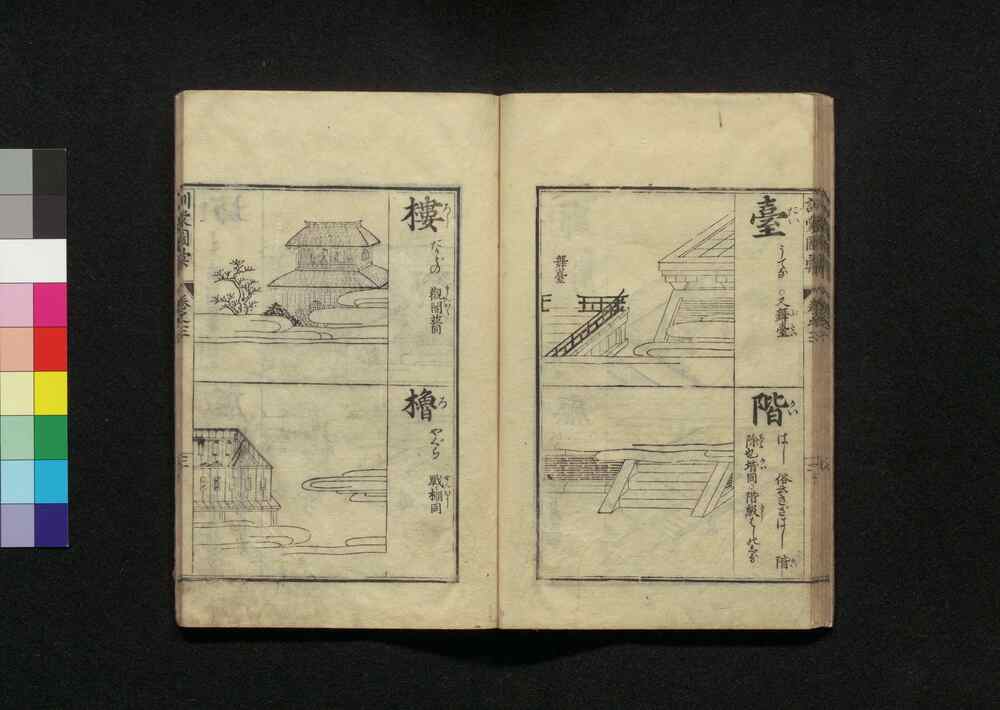 臺 だい
うてな ○又舞臺
舞臺
階 かい
はし 俗云きざはし 階
除也堦同 階級
樓 ろう
たかどの 觀閣並同
櫓 ろ
やぐら 戰棚同
訓蒙圖彙
卷之三